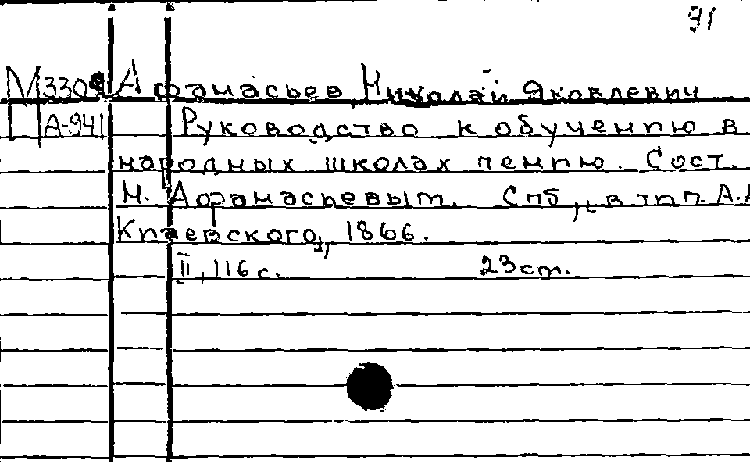 91
М330 Афанасьев, Николай Яковлевич
П А-941 Руководство к обученпю в
народных школах пенпю. Сост.
Н. Афанасьевым. Спб., в тпп. А.
Кпаевского, 1866.
II, 116 с. 23 см.